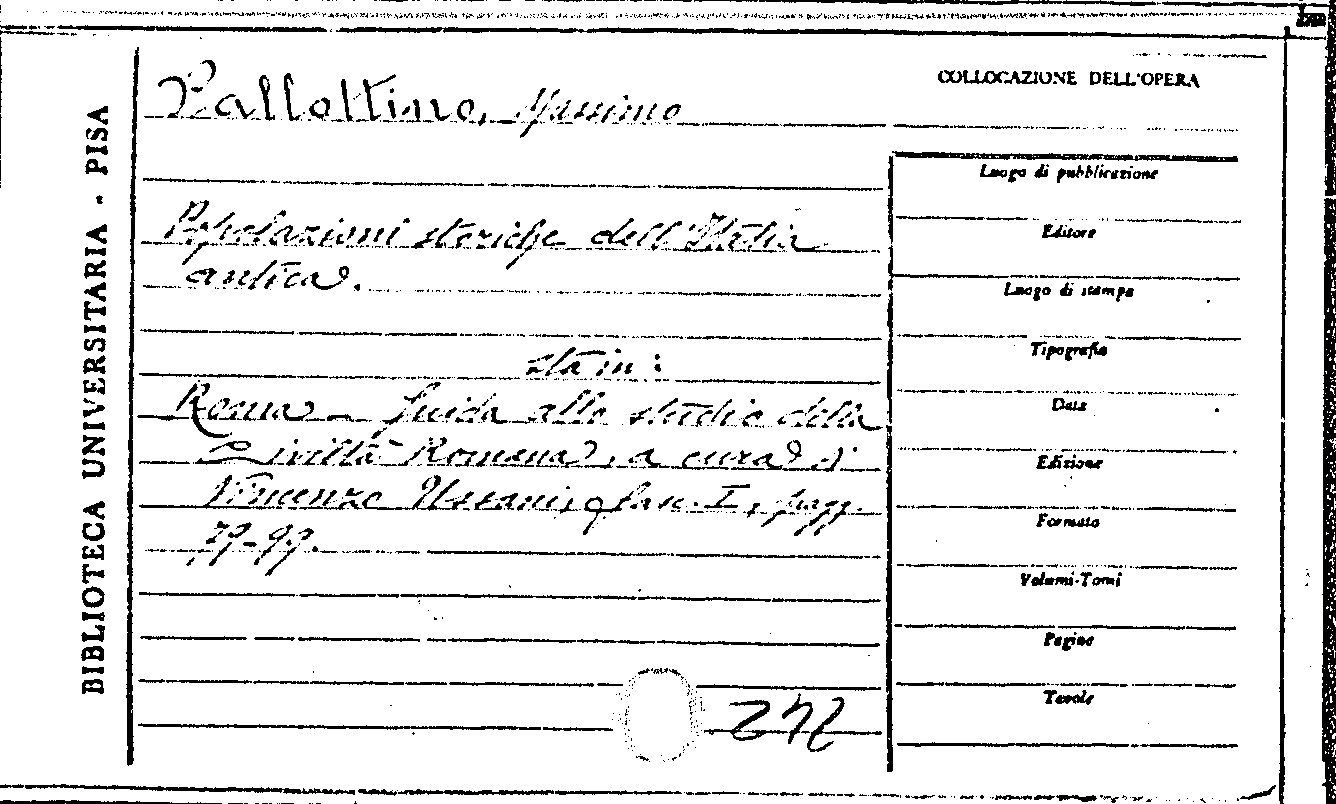 BIBLIOTECA UNIVERSITARIA - PISA
Pallottino, Massimo
Popolazioni storiche dell'Italia
antica.
sta in:
Roma - Guida allo studio della
Civiltà Romana, a cura di
Vincenzo Ussani, fasc. I, pagg.
79-99.
COLLOCAZIONE DELL'OPERA
Luogo di pubblicazione
Editore
Luogo di stampa
Tipografia
Data
Edizione
Formato
Volumi-Tomi
Pagine
Tavole